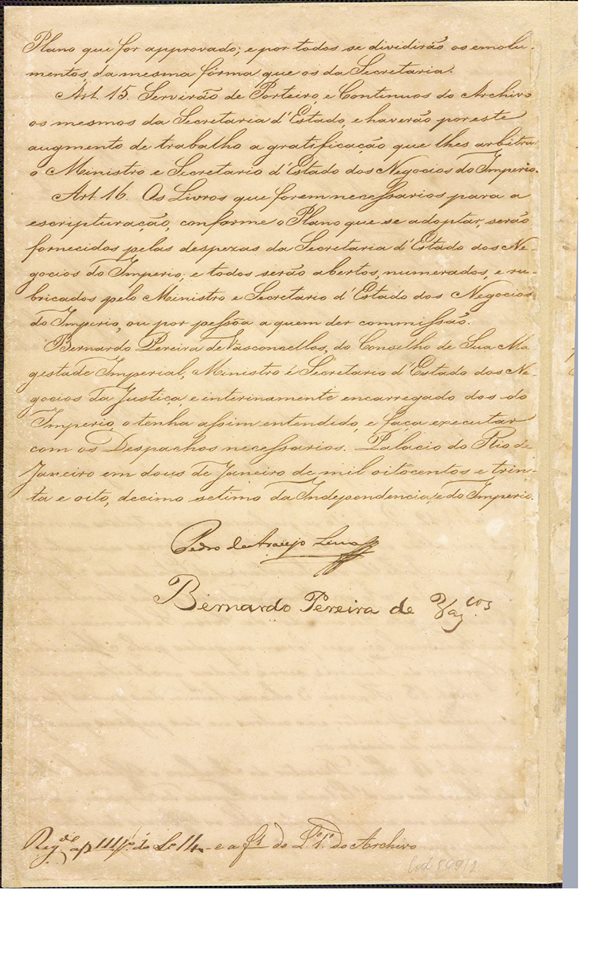 Plano que for approvado; e por todos se dividirão os emolu-
mentos, da mesma fórma que os da Secretaria.
Art. 15. Servirão de Porteiro, e Continuos do Archivo
os mesmos da Secretaria d'Estado, e haverão por este
augmento de trabalho a gratificação que lhes arbitrar
o Ministro e Secretario d'Estado dos Negocios do Imperio.
Art. 16. Os Livros que forem necessarios para a
escripturação, conforme o Plano que se adoptar, serão
fornecidos pelas despezas da Secretaria d'Estado dos Ne-
gocios do Imperio, e todos serão abertos, numerados, e ru-
bricados pelo Ministro e Secretario d'Estado dos Negocios
do Imperio, ou por pessôa a quem der commissão.
Bernardo Pereira de Vasconcellos, do Conselho de Sua Ma-
gestade Imperial, Ministro e Secretario d'Estado dos Ne-
gocios da Justiça, e interinamente encarregado dos do
Imperio o tenha assim entendido, e faça executar
com os Despachos necessarios. Palacio do Rio de
Janeiro em dous de Janeiro de mil oitocentos e trin-
ta e oito, decimo setimo da Independencia, e do Imperio.
Pedro de Araujo Lima
Bernardo Pereira de Vas.cos
e a f 1 do L.o 1.o do Archivo